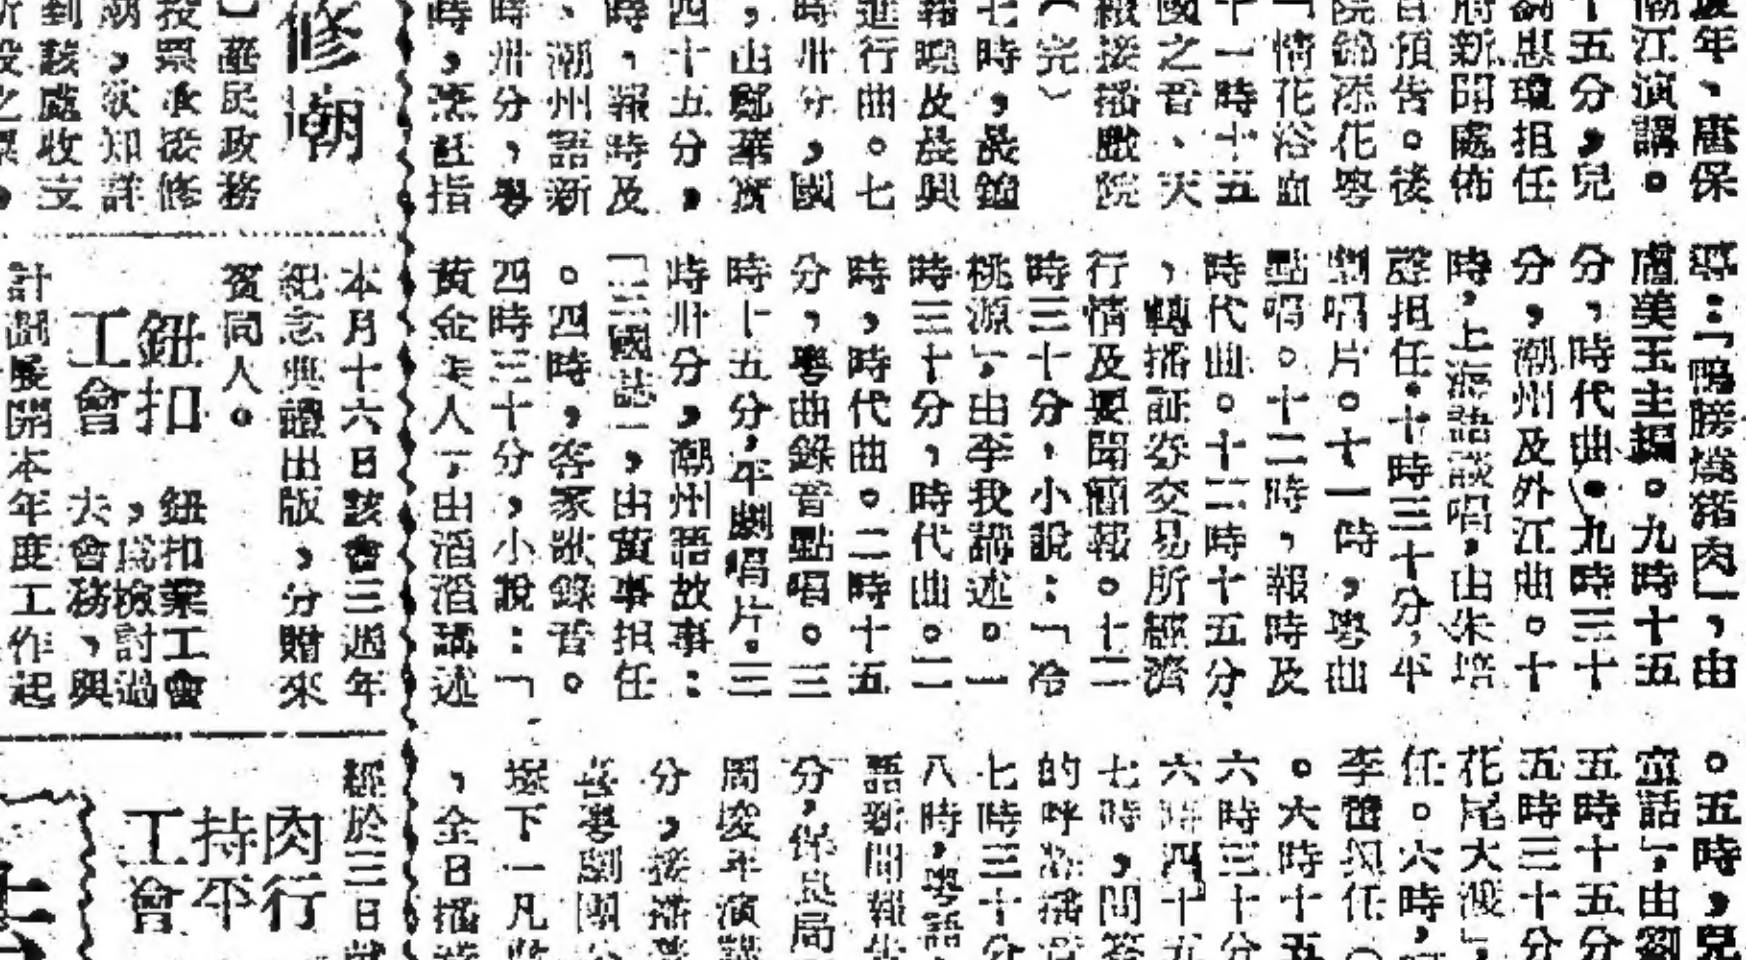 年、唐保
潮江演講。
十五分,兒
劉惠瓊担任
府新聞處佈
目預告。後
院錦添花粵
「情花浴血
十一時十五
國之音、天
續接播戲院
(完)
七時,晨鐘
報曉及晨興
進行曲。七
時卅分,國
,由鄭華寶
四十五分,
時,報時及
、潮州語新
時卅分,粵
時,烹飪指
導:「鴨勝燒猪肉」,由
盧美玉主編。九時十五
分,時代曲。九時三十
分,潮州及外江曲。十
時,上海語談唱,由朱培
聲担任。十時三十分,平
劇唱片。十一時,粵曲
點唱。十二時,報時及
時代曲。十二時十五分
,轉播証劵交易所經濟
行情及要聞簡報。十二
時三十分,小說:「冷
桃源」,由李我講述。一
時三十分,時代曲。二
時,時代曲。二時十五
分,粵曲錄音點唱。三
時十五分,平劇唱片。三
時卅分,潮州語故事:
「三國誌」,由黃事担任
。四時,客家歌錄音。
四時三十分,小說:「
黃金美人」,由滔滔講述
。五時,兒
童話」,由劉
五時十五分
五時三十分
花尾大渡」,
任。六時,
李聲担任(
。六時十五
六時三十分
六時四十五
七時,問答
的呼聲播音
七時三十分
八時,粵語
語新聞報告
分,保良局
周埈年演講
分,接播
善粵劇團
塚下一凡
,全日播
修潮
】華民政務
投票承接修
潮,欲知詳
到該處收支
所投之票。
本月十六日該會三週年
紀念典禮出版,分贈來
賓同人。
鈕扣
工會
鈕扣業工會
,為檢討過
去會務,興
計劃展開本年度工作起
經於三日
肉行
持平
工會